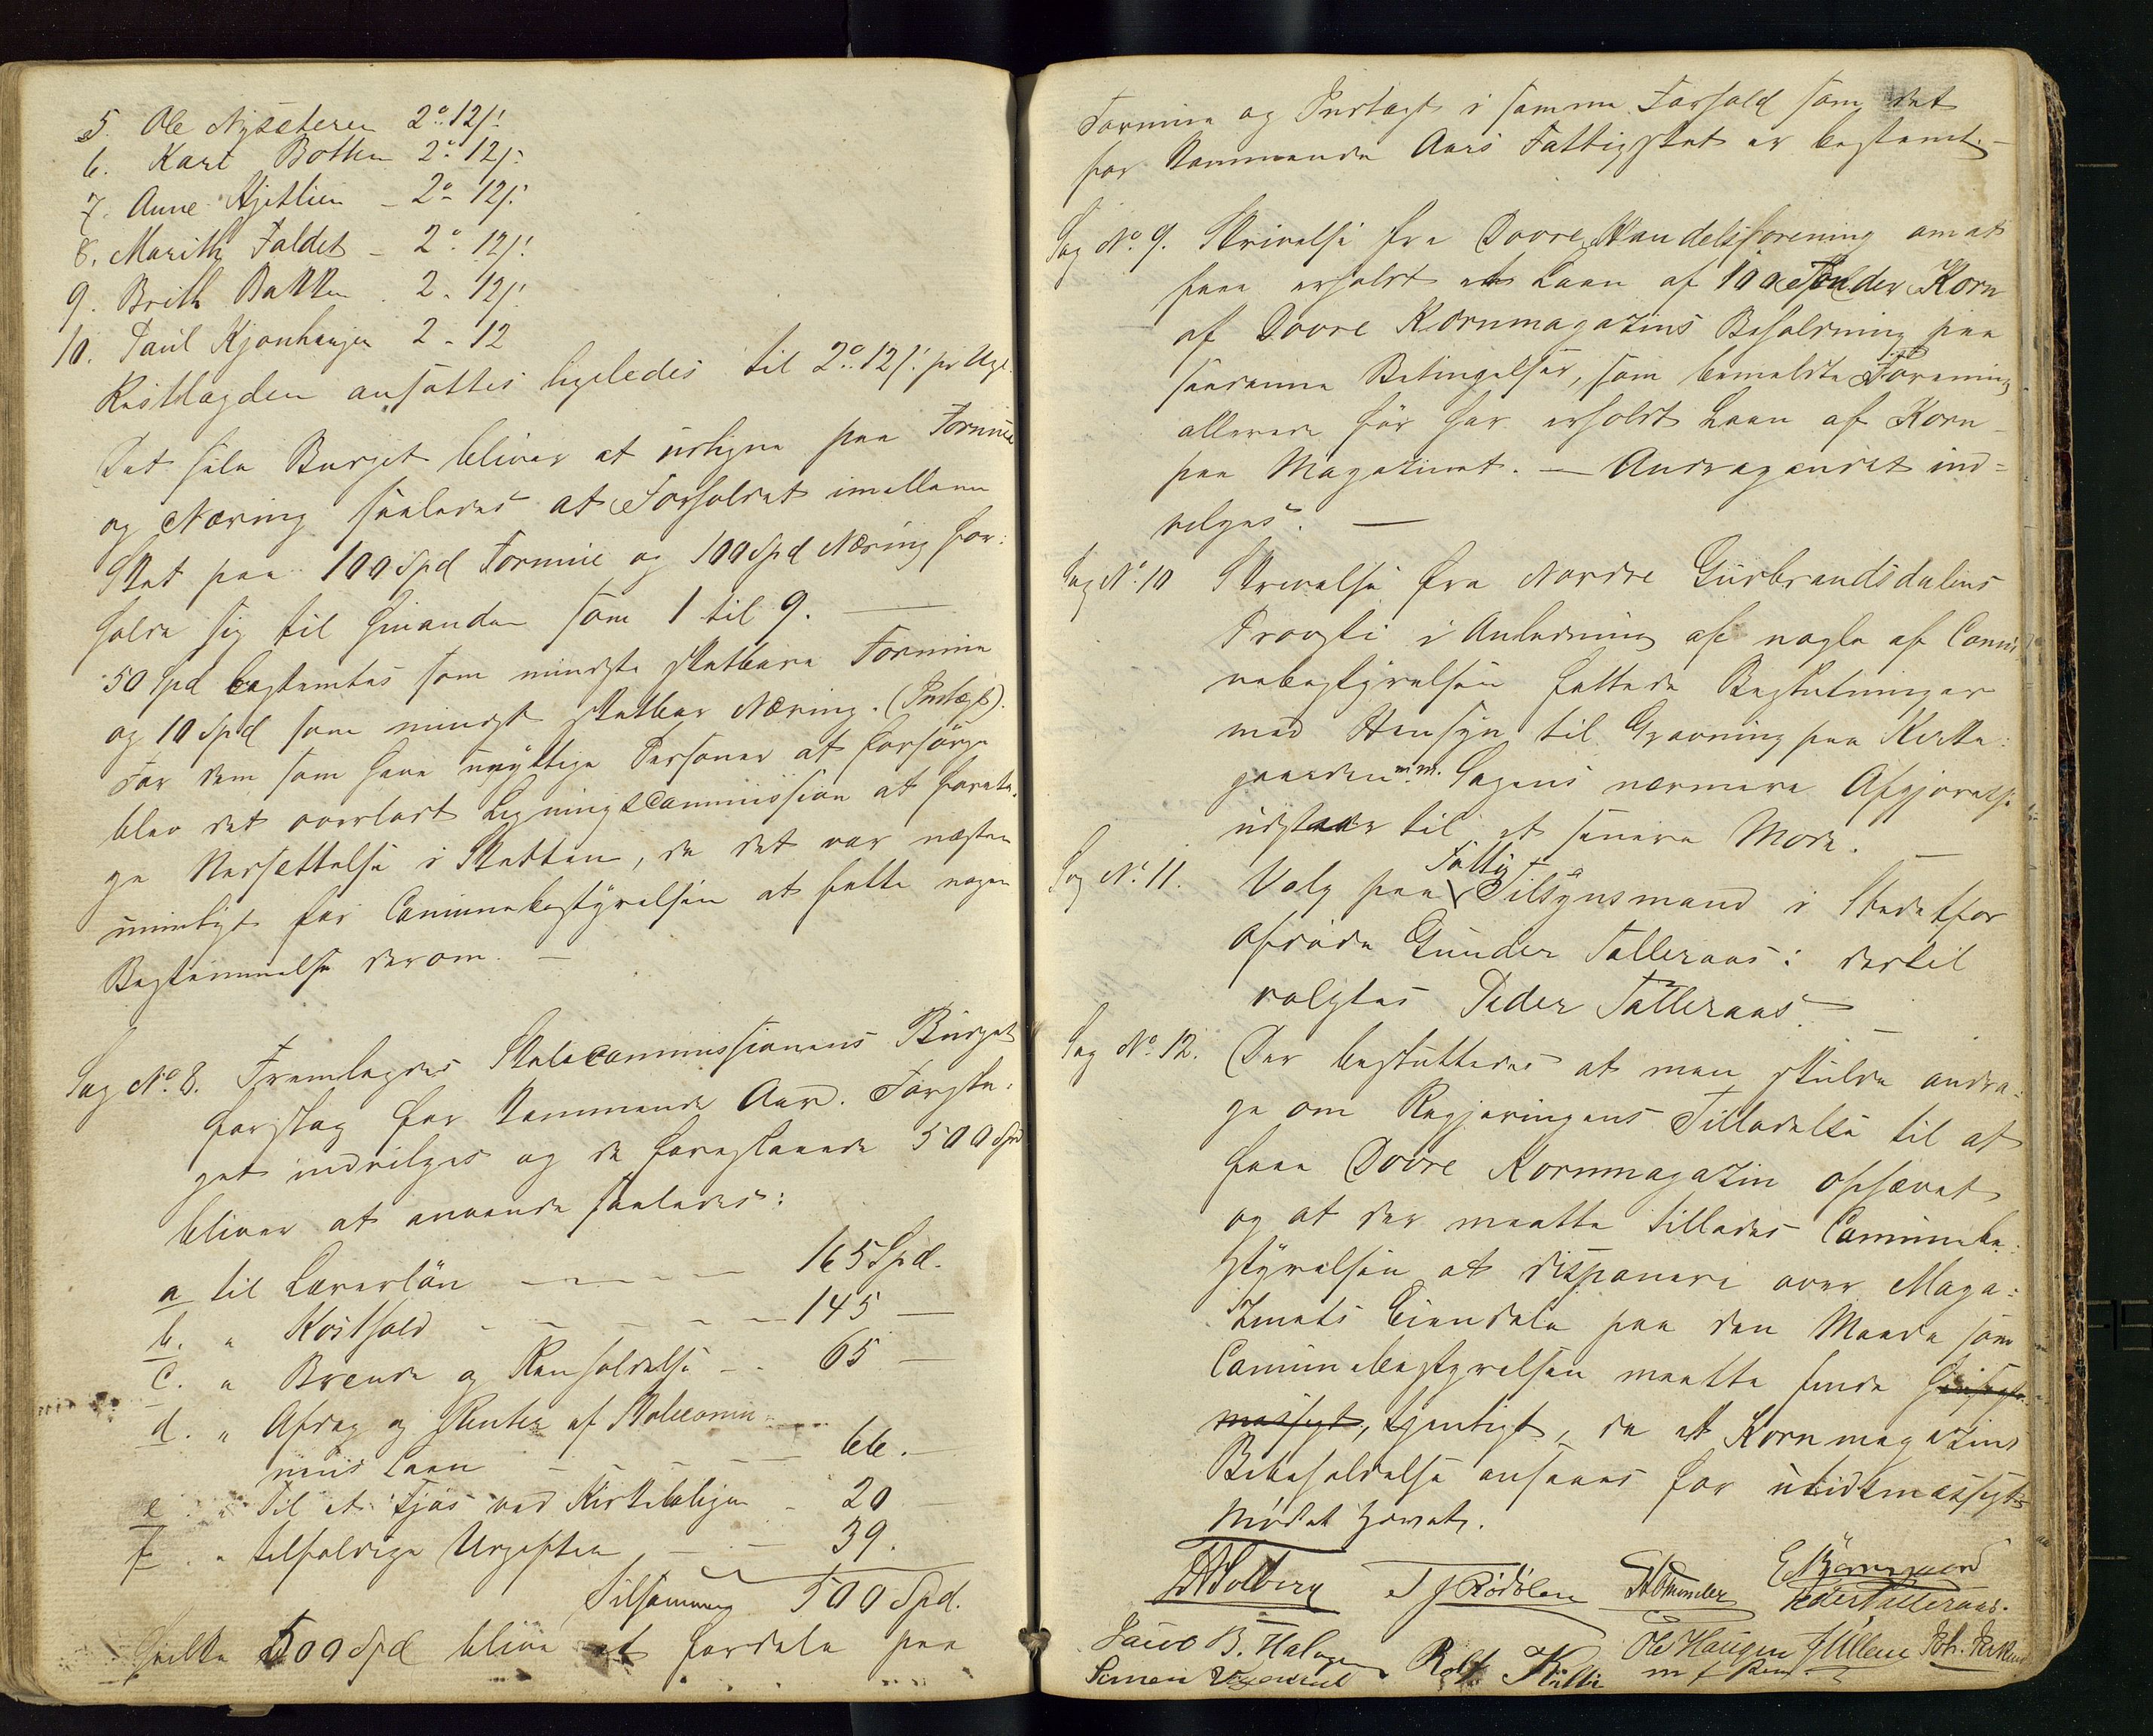 5. Ole Nysæteren 2" 12 s.
6. Kari Botten 2" 12 s.
7. Anne Kjetlien - 2" 12 s.
8. Marith Faldet - 2" 12 s.
9. Brith Bakken . 2 - 12 s.
10. Paul Kjønhaugen 2 - 12
Restlægden ansattes ligeledes til 2" 12 s. pr Uge.
Det hele Budget bliver at udligne paa Formue
og Næring saaledes at Forholdet imellem
Skat paa 100 Spd Formue og 100 Spd Næring for:
holde sig til hinanden som 1 til 9. —
50 Spd bestemtes som mindste skatbare Formue
og 10 Spd som mindst skatbar Næring. (Indtægt).
For dem som have unyttige Personer at forsørge
blev det overladt Ligningscommissionen at foreta-
ge Nedsættelse i Skatten, da det var næsten
umuligt for Communebestyrelsen at fatte nogen
Bestemmelse derom. —
Sag No. 8. Fremlagdes Skolecommissionens Budget
forslag for kommende Aar. Forsla:
get indvilges og de foreslaaede 500 Spd
bliver at anvende saaledes:
a til Lærerløn - - - - 165 Spd.
b. " Kosthold - - - - - 145 —
c. " Brende og Renholdelse - - 65 —
d. " Afdrag og Renter af Skolecomu-
nens Laan - - - - 66. —
e. " Til et Fjøs ved Kirkeboligen - 20
f. " tilfældige Udgifter - - 39.
Tilsammen 500 Spd.
Hvilke 500 Spd bliver at fordele paa
Formue og Indtægt i samme Forhold som det
for kommende Aars Fattigskat er bestemt. —
Sag No. 9. Skrivelse fra Dovre Handelsforening om at
faae erholdt et Laan af 100 Tønder Korn
af Dovre Kornmagazins Beholdning paa
saadanne Betingelser, som bemeldte Forening
allerede før har erholdt Laan af Korn
paa Magazinet. — Andragendet ind=
vilges. —
Sag No. 10 Skrivelse fra Nordre Gudbrandsdalens
Provsti i Anledning af nogle af Commu-
nebestyrelsen fattede Beslutninger
med Hensyn til Gravning paa Kirke:
gaarden m.m. Sagens nærmere Afgjørelse
udstaaer til et senere Møde. —
Sag No. 11. Valg paa Fattig Tilsynsmand i Stedet for
afdøde Gunder Talleraas: dertil
valgtes Peder Talleraas. —
Sag No. 12. Der besluttedes at man skulde andra-
ge om Regjeringens Tilladelse til at
faae Dovre Kornmagazin ophævet
og at der maatte tillades Communebe:
styrelsen at disponere over Maga:
zinets Eiendele paa den Maade som
Communebestyrelsen maatte finde hensigts-
mæssigt, tjenligt, da et Kornmagazins
Bibeholdelse ansees for utidsmæssigt
Mødet hævet.
Solberg T J Rødølen
E Bjørnsgaard
Peder Talleraas.
Jacob B. Halogen Rolf Kollie Ole Haugen J Ullern Joh.
Simen
m f Pen